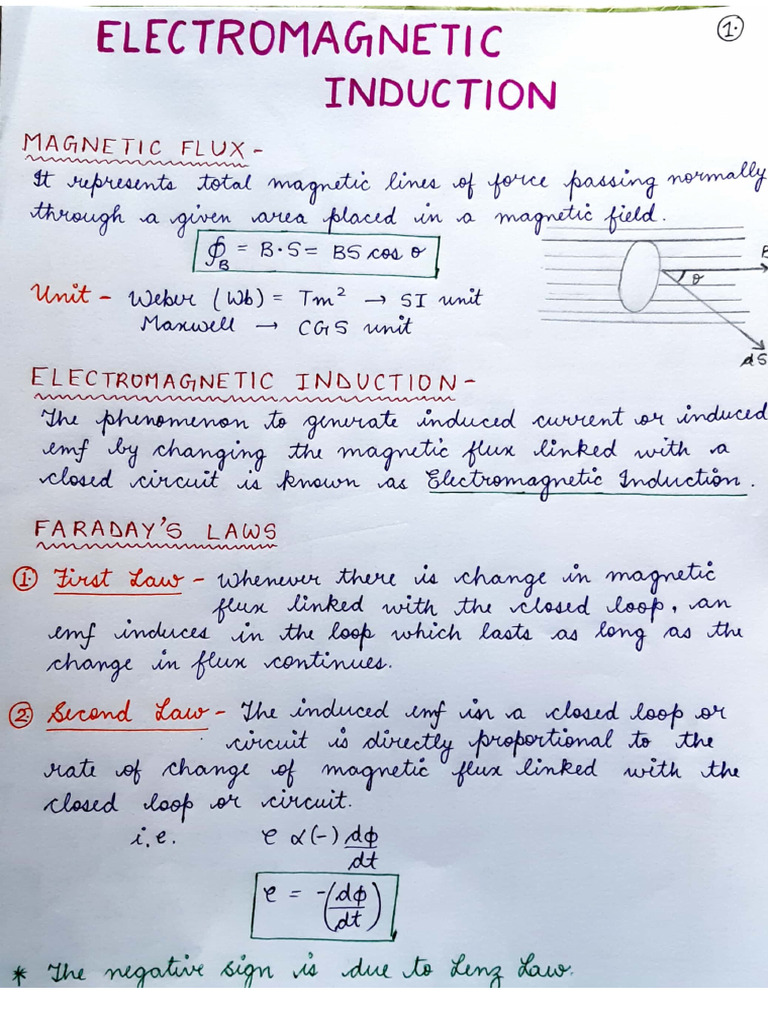 ELECTROMAGNETIC
1.
INDUCTION
MAGNETIC FLUX -
It represents total magnetic lines of force passing normally
through a given area placed in a magnetic field.
ϕ_B = B·S = BS cos θ
B
θ
dS
Unit - Weber (Wb) = Tm² → SI unit
Maxwell → CGS unit
ELECTROMAGNETIC INDUCTION -
The phenomenon to generate induced current or induced
emf by changing the magnetic flux linked with a
closed circuit is known as Electromagnetic Induction.
FARADAY'S LAWS
1. First Law - Whenever there is change in magnetic
flux linked with the closed loop, an
emf induces in the loop which lasts as long as the
change in flux continues.
2. Second Law - The induced emf in a closed loop or
circuit is directly proportional to the
rate of change of magnetic flux linked with the
closed loop or circuit.
i.e. e ∝ (-) dϕ/dt
e = -(dϕ/dt)
* The negative sign is due to Lenz Law.